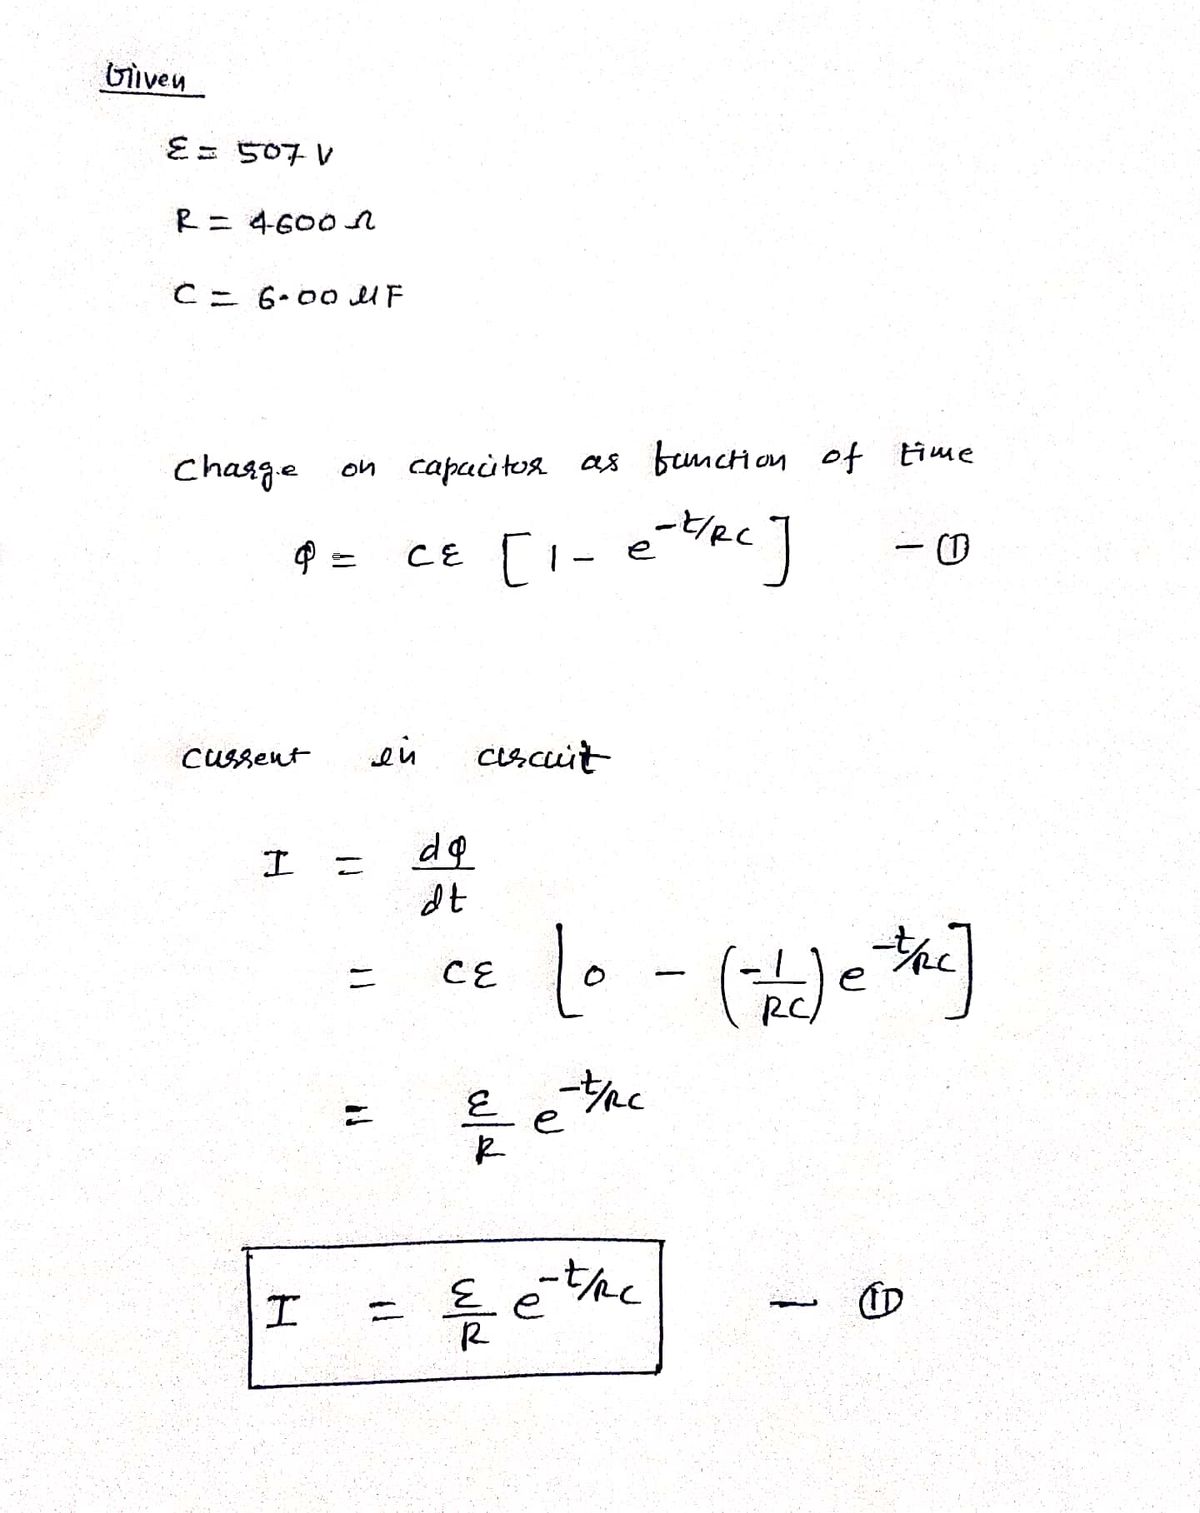 Given
ε = 507 V
R = 4600 Ω
C = 6.00 μF
Charge on capacitor as function of time
φ = Cε [1 - e^{-t/RC}] - Ⓘ
Current in circuit
I = dφ/dt
= Cε [0 - (-1/RC) e^{-t/RC}]
= ε/R e^{-t/RC}
I = ε/R e^{-t/RC} - ⓘⓘ